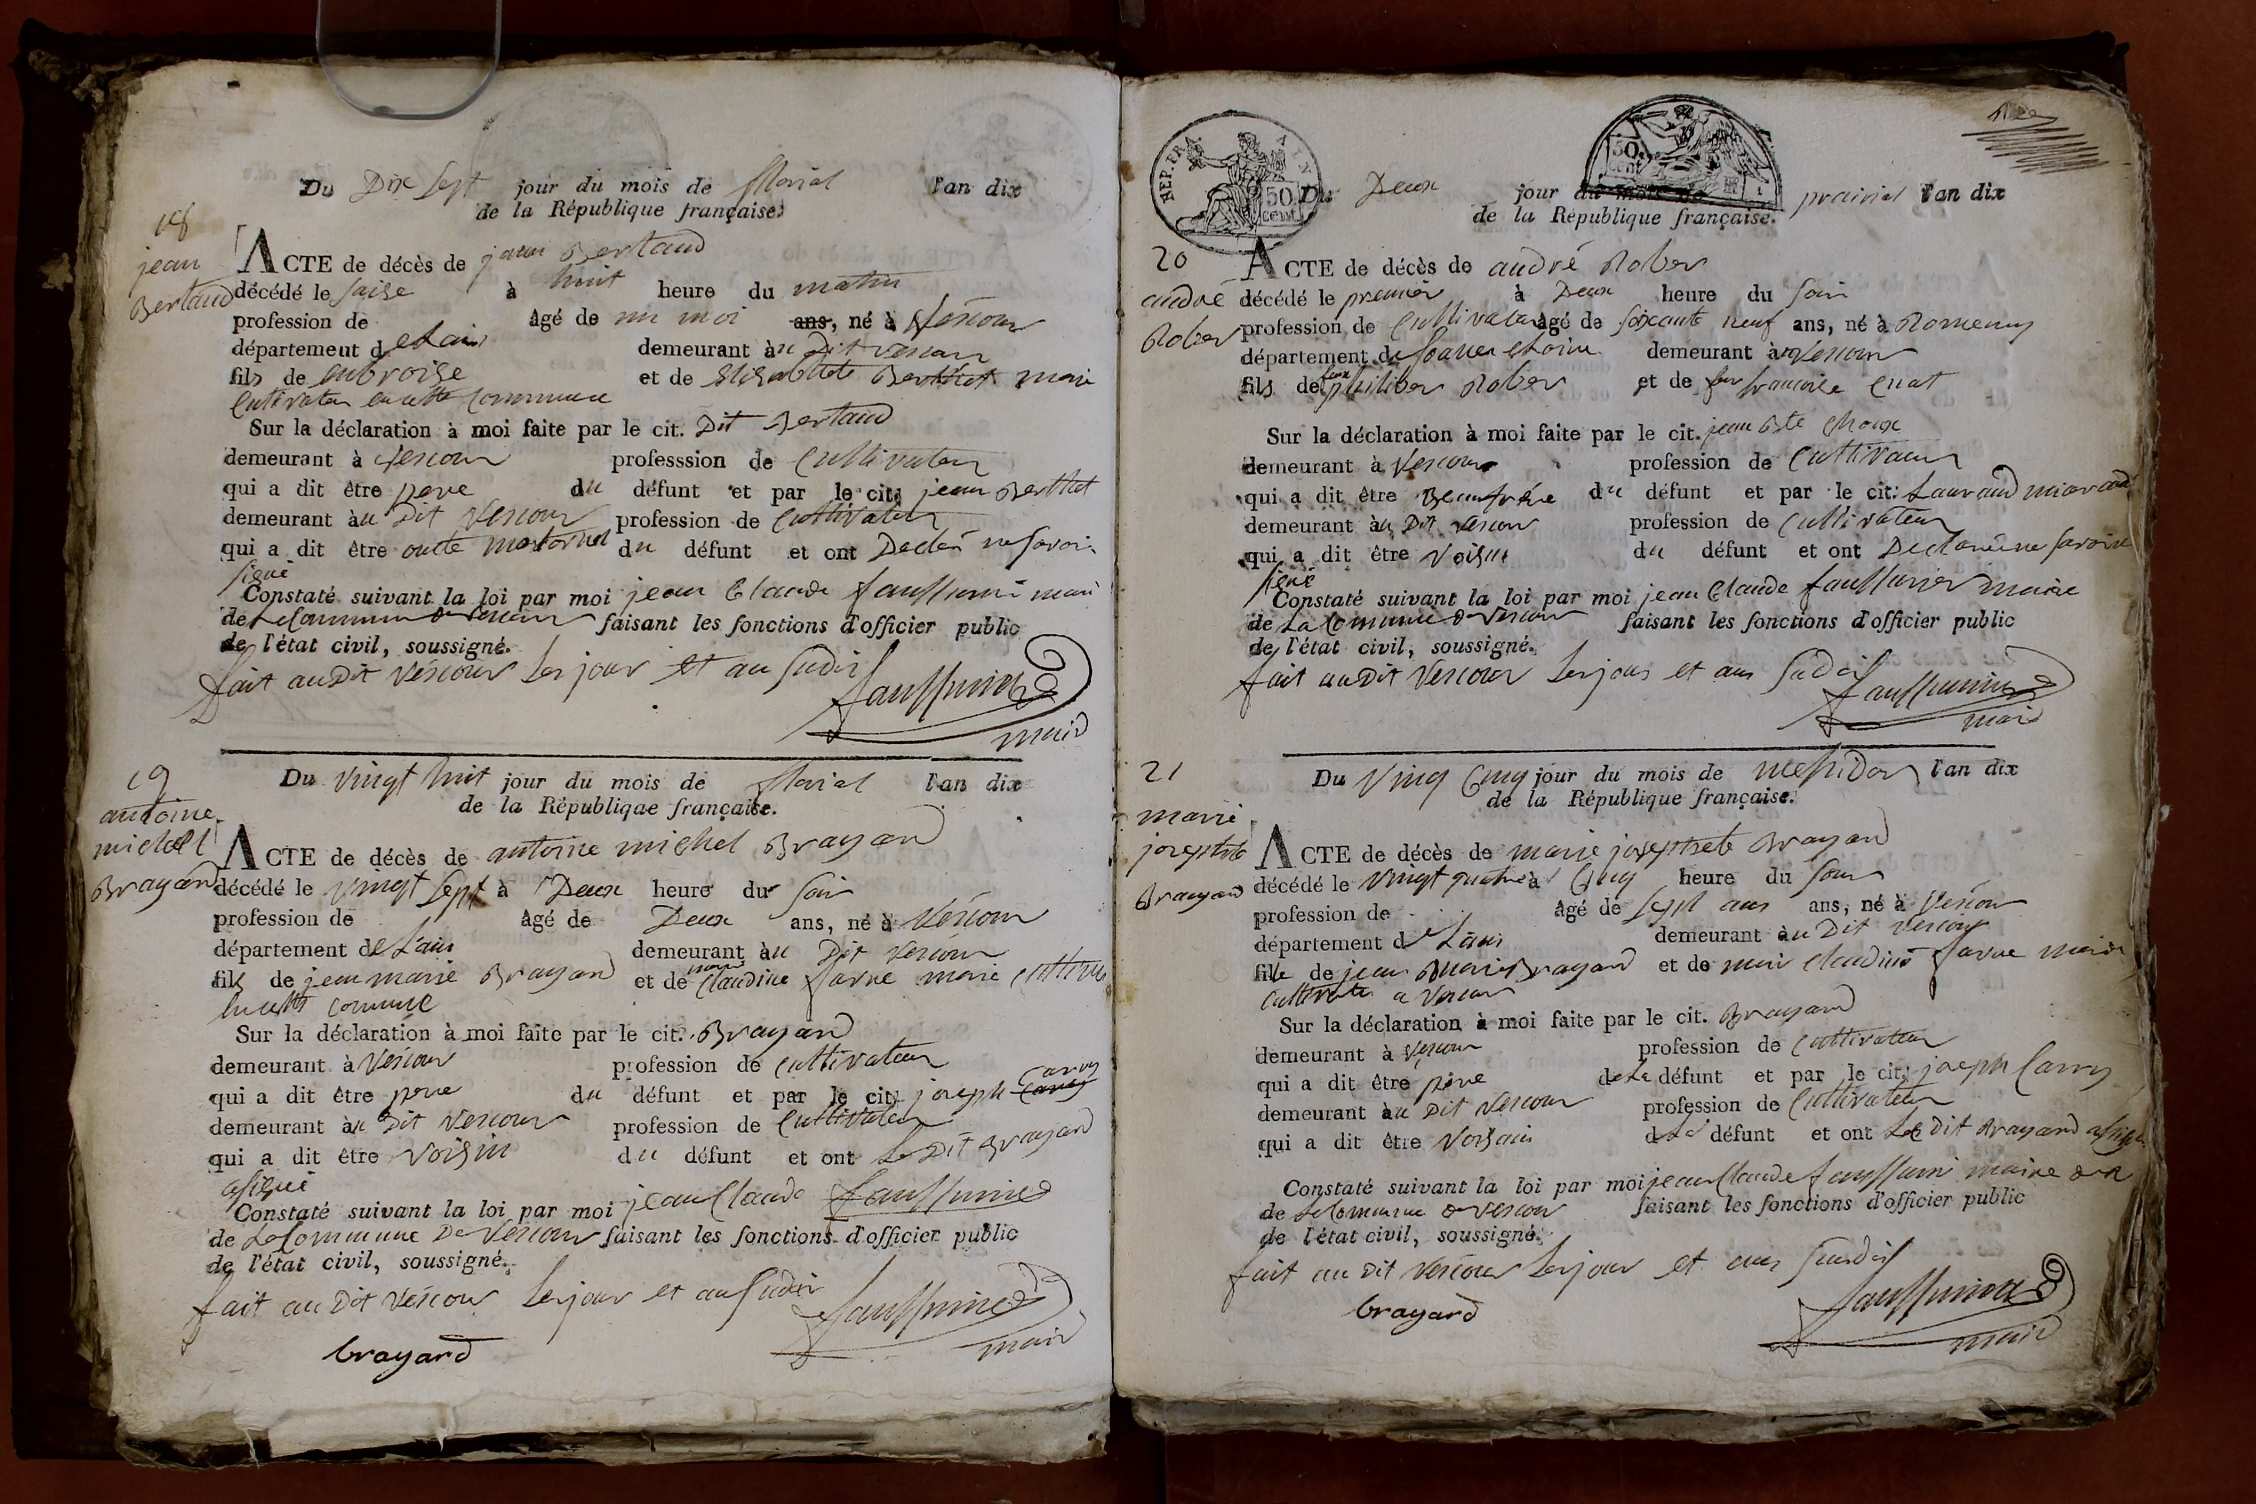 Du Dix Sept jour du mois de floréal l'an dix
de la République française.
18
jean
Bertaud
ACTE de décès de jean Bertaud
décédé le saise à huit heure du matin
profession de âgé de un moi ans, né à Vescour
département de Lain demeurant au Dit vescour
fils de enbroise et de Elisabthe Berthet marié
Cultivateur en cette Commune
Sur la déclaration à moi faite par le cit. Dit Bertaud
demeurant à Vescour professsion de Cultivateur
qui a dit être pere du défunt et par le cit. jean Berthet
demeurant au Dit Vescour profession de Cultivateur
qui a dit être oncle maternel du défunt et ont Déclaré ne savoir
signé
Constaté suivant la loi par moi jean Claude
de la Commune de Vescour faisant les fonctions d'officier public
de l'état civil, soussigné.
fait au Dit Vescour Les jour et an Sudis
maire
19
antoine
michel
Brayard
Du vingt huit jour du mois de floréal l'an dix
de la Républiqae française.
ACTE de décès de antoine michel Brayard
décédé le vingt Sept à Deux heure du soir
profession de âgé de Deux ans, né à Vescour
département de Lain demeurant au Dit Vescour
fils de jean marie Brayard et de marie Claudine farve marié
en cette Commune
Sur la déclaration à moi faite par le cit. Brayard
demeurant à Vescour profession de Cultivateur
qui a dit être pere du défunt et par le cit. joseph
demeurant au Dit Vescour profession de Cultivateur
qui a dit être voisin du défunt et ont Le Dit Brayard
asigné
Constaté suivant la loi par moi jean Claude
de La Commune De Vescour faisant les fonctions d'officier public
de l'état civil, soussigné.
fait au Dit Vescour Les jour et an Sudis
maire
brayard
REP. FRA.
50
cent
50
cent
Du Deux jour du mois de prairial l'an dix
de la République française.
20
andré
Rober
ACTE de décès de andré Rober
décédé le premier à Deux heure du soir
profession de Cultivateur âgé de soixante neuf ans, né à Romenay
département de Soane et Loire demeurant au Vescour
fils de feu philiber Rober et de feu francoise Cuat
Sur la déclaration à moi faite par le cit. jean Bte Choux
demeurant à Vescour profession de Cultivateur
qui a dit être Beaufrère du défunt et par le cit.
demeurant au Dit Vescour profession de Cultivateur
qui a dit être Voisin du défunt et ont Declaré ne savoir
signé
Constaté suivant la loi par moi jean Claude maire
de La Commune de Vescour faisant les fonctions d'officier public
de l'état civil, soussigné.
fait au Dit Vescour Les jour et an Sudis
maire
21
marie
josephete
Brayard
Du Vinq Cinq jour du mois de messidor l'an dix
de la République française.
ACTE de décès de marie josephete Brayard
décédé le vingt quatre à Cinq heure du soir
profession de âgé de sept ans ans, né à Vescour
département de Lain demeurant au Dit Vescour
fille de jean Marie Brayard et de marie Claudine farve marié
Cultivateur a Vescour
Sur la déclaration à moi faite par le cit. Brayard
demeurant à Vescour profession de Cultivateur
qui a dit être père de La défunt et par le cit. joseph
demeurant au Dit Vescour profession de Cultivateur
qui a dit être Voisin de La défunt et ont Le dit Brayard
Constaté suivant la loi par moi jean Claude maire
de La Commune de Vescour faisant les fonctions d'officier public
de l'état civil, soussigné.
fait au Dit Vescour Les jour et an Susdis
maire
brayard